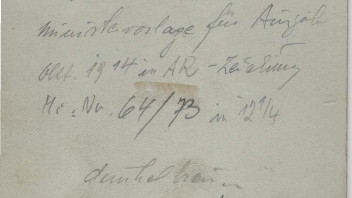 Ministervorlage für Ausgabe
Okt. 1914 in AR-Zeichnung
Me: Nr. 64/73 in 12 1/4
dunkelbraun